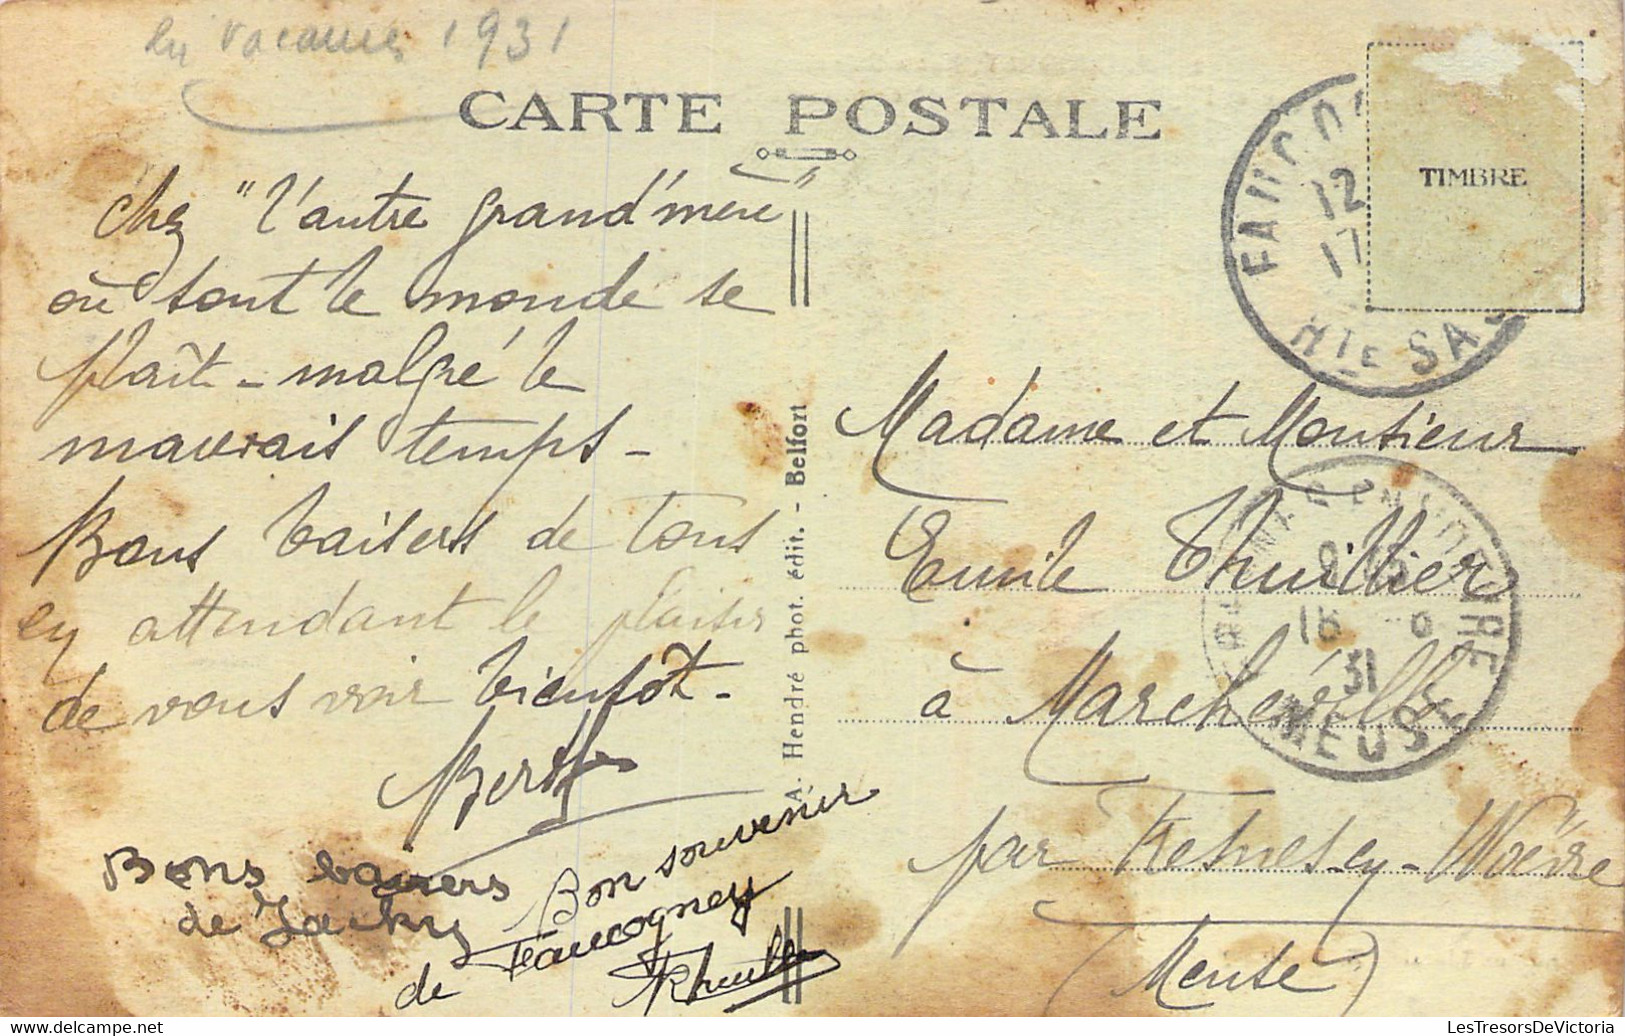 en vacances 1931
CARTE POSTALE
TIMBRE
12
17
HTE SA
Chez "l'autre grand'mère"
où tout le monde se
plaît - malgré le
mauvais temps -
Bons baisers de tous
en attendant le plaisir
de vous voir bientôt -
Berthe
Bons baisers
de Jacky
Bon souvenir
de Faucogney
A. Hendré phot. édit. - Belfort
Madame et Monsieur
Emile Thuillier
à Marchéville
par Fresnes-en-Woëvre
(Meuse)
31
MEUSE
LesTresorsDeVictoria